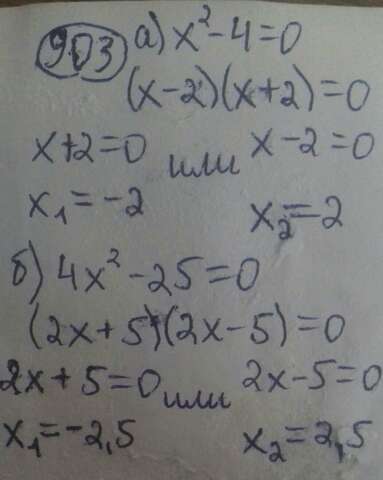 903 а) x² - 4 = 0
(x - 2)(x + 2) = 0
x + 2 = 0 или x - 2 = 0
x₁ = -2 x₂ = 2
б) 4x² - 25 = 0
(2x + 5)(2x - 5) = 0
2x + 5 = 0 или 2x - 5 = 0
x₁ = -2,5 x₂ = 2,5